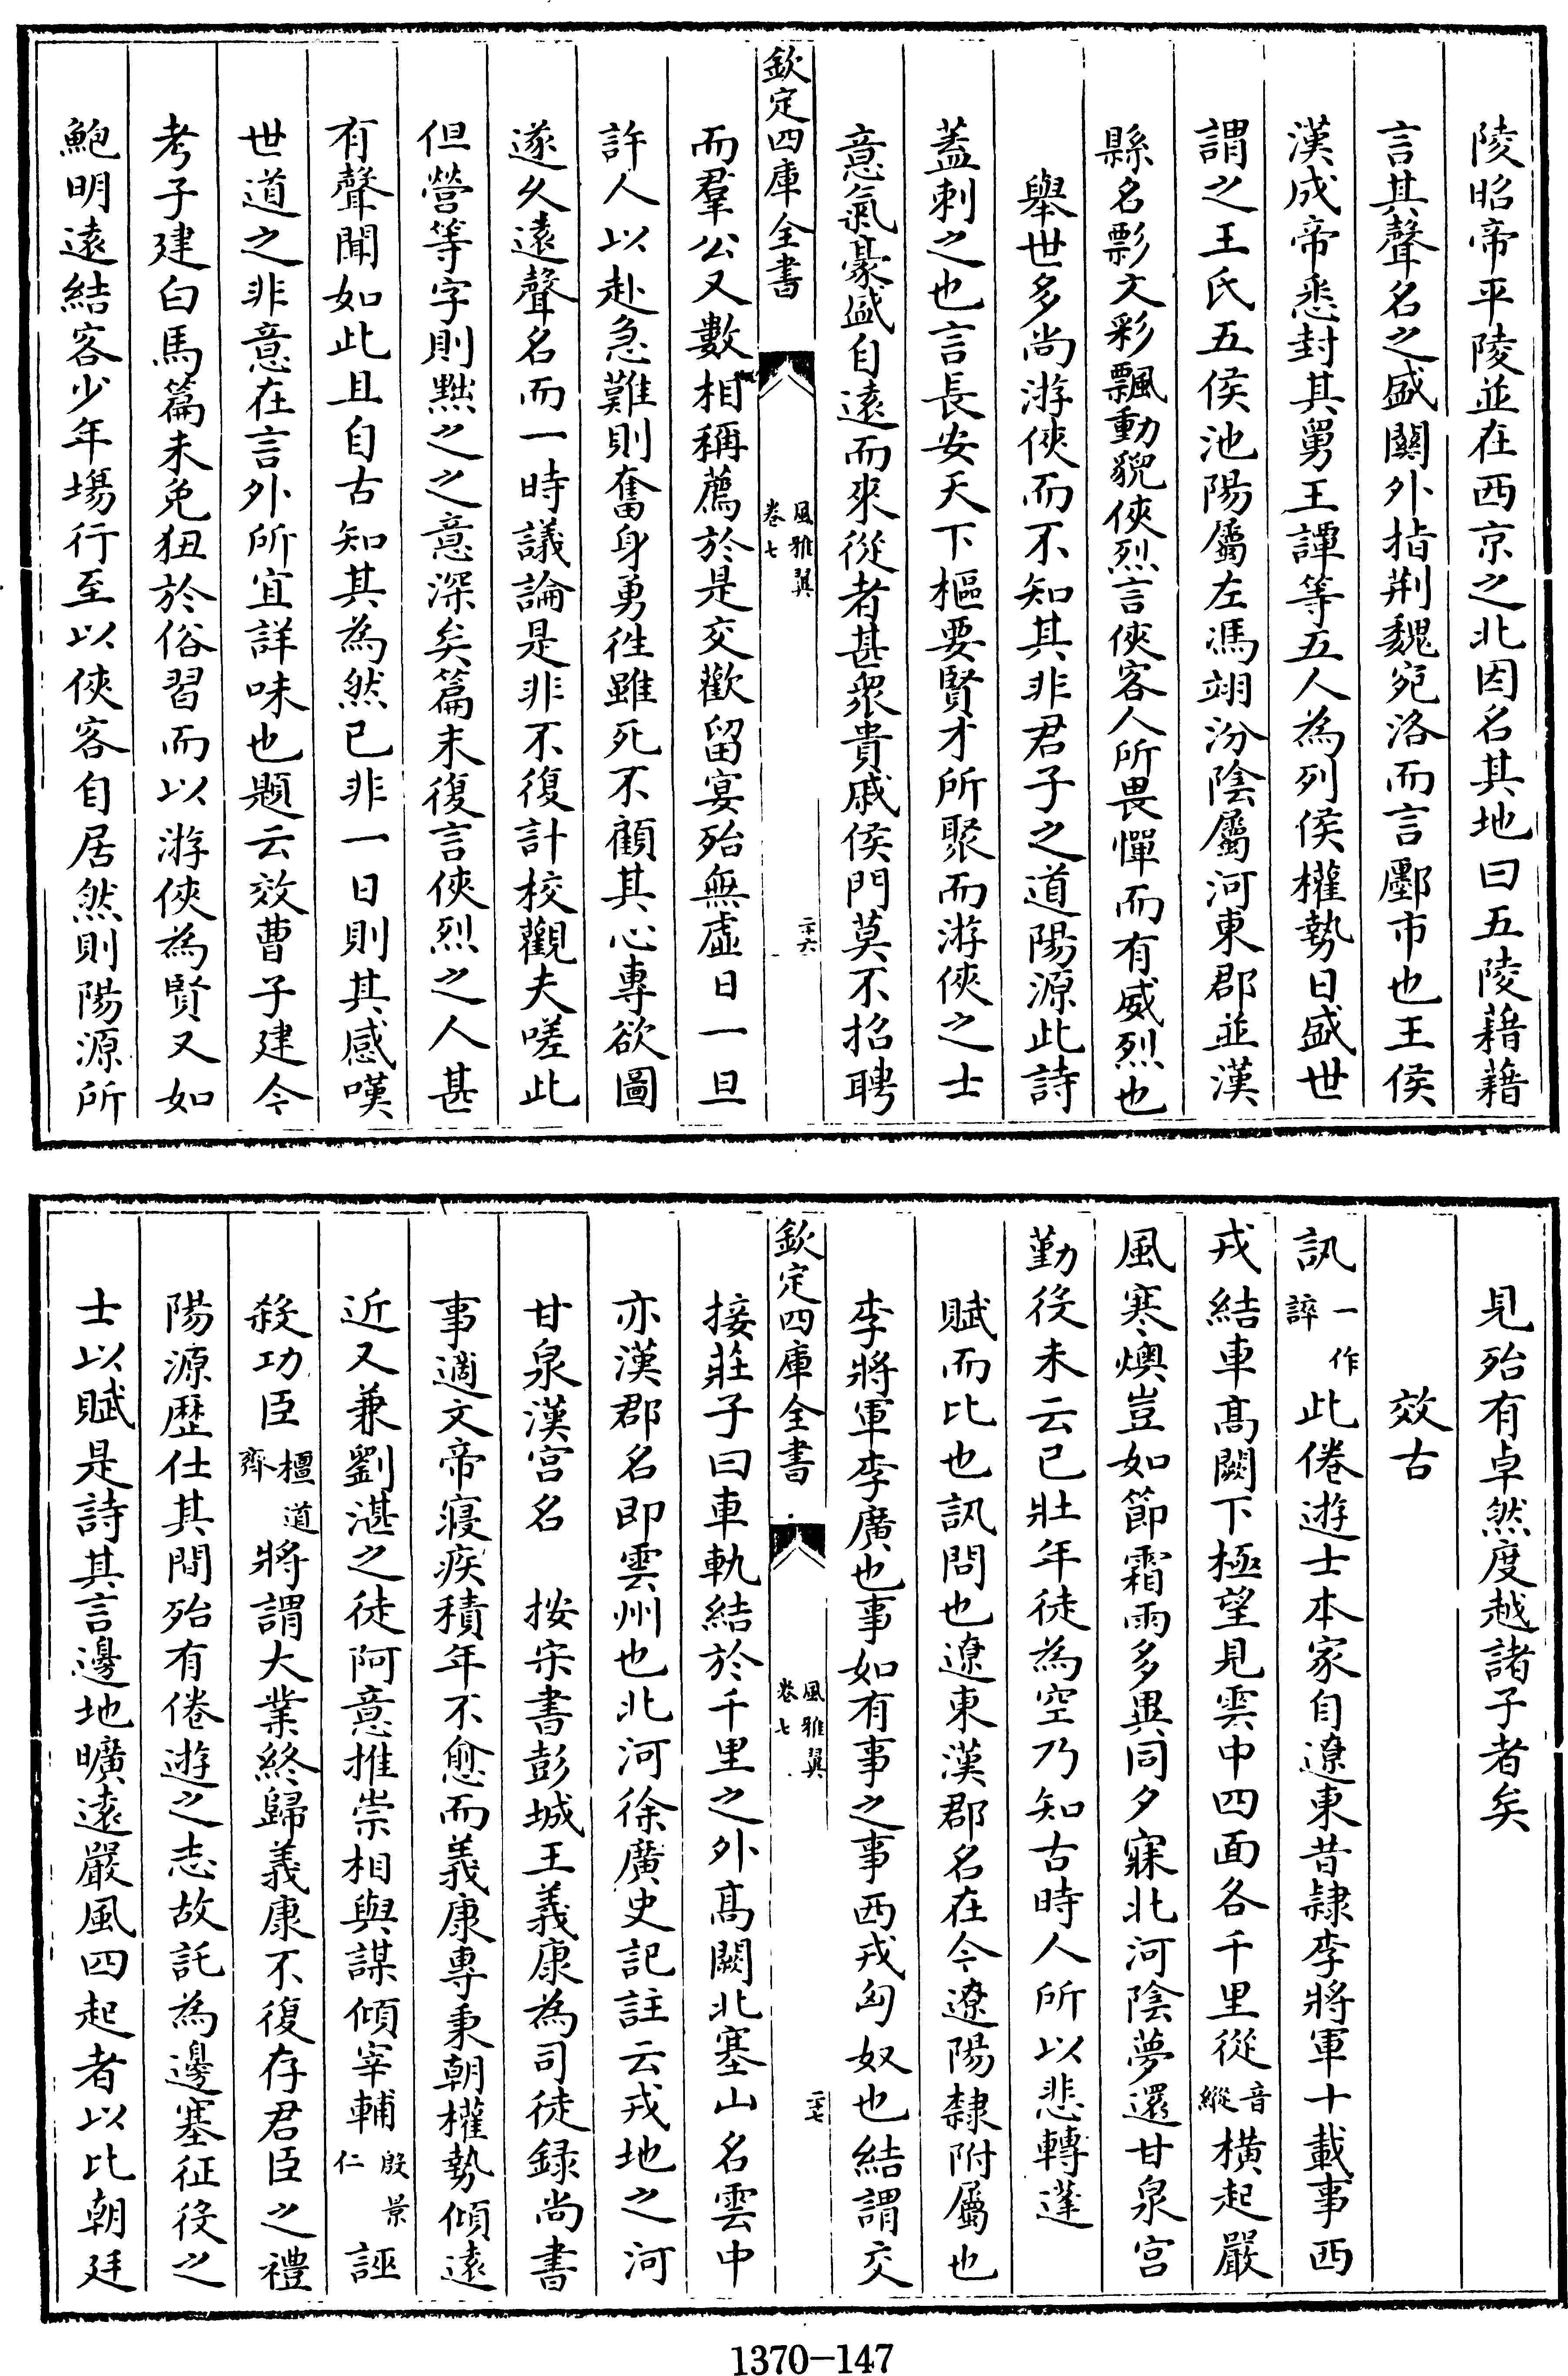 陵昭帝平陵並在西京之北因名其地曰五陵藉藉
言其聲名之盛關外指荆魏宛洛而言鄽市也王侯
漢成帝悉封其舅王譚等五人為列侯權勢日盛世
謂之王氏五侯池陽屬左馮翊汾陰屬河東郡並漢
縣名彯文彩飄動貌俠烈言俠客人所畏憚而有威烈也
舉世多尚游俠而不知其非君子之道陽源此詩
葢刺之也言長安天下樞要賢才所聚而游俠之士
意氣豪盛自遠而來從者甚衆貴戚侯門莫不招聘
欽定四庫全書
風雅翼
卷七
二十六
而羣公又數相稱薦於是交歡留宴殆無虚日一旦
許人以赴急難則奮身勇徃雖死不顧其心專欲圖
遂久遠聲名而一時議論是非不復計校觀夫嗟此
但營等字則黙之之意深矣篇末復言俠烈之人甚
有聲聞如此且自古知其為然已非一日則其感嘆
世道之非意在言外所宜詳味也題云效曹子建今
考子建白馬篇未免狃於俗習而以游俠為賢又如
鮑明遠結客少年塲行至以俠客自居然則陽源所
見殆有卓然度越諸子者矣
效古
訊一作誶此倦遊士本家自遼東昔隷李將軍十載事西
戎結車髙闕下極望見雲中四面各千里從音縱橫起嚴
風寒燠豈如節霜雨多異同夕寐北河陰夢還甘泉宫
勤役未云已壯年徒為空乃知古時人所以悲轉蓬
賦而比也訊問也遼東漢郡名在今遼陽隸附屬也
李將軍李廣也事如有事之事西戎匈奴也結謂交
欽定四庫全書
風雅翼
卷七
二十七
接莊子曰車軌結於千里之外髙闕北塞山名雲中
亦漢郡名即雲州也北河徐廣史記註云戎地之河
甘泉漢宫名　按宋書彭城王義康為司徒録尚書
事適文帝寢疾積年不愈而義康專秉朝權勢傾遠
近又兼劉湛之徒阿意推崇相與謀傾宰輔殷景仁誣
殺功臣檀道齊將謂大業終歸義康不復存君臣之禮
陽源歴仕其間殆有倦遊之志故託為邊塞征役之
士以賦是詩其言邊地曠遠嚴風四起者以比朝廷
1370-147